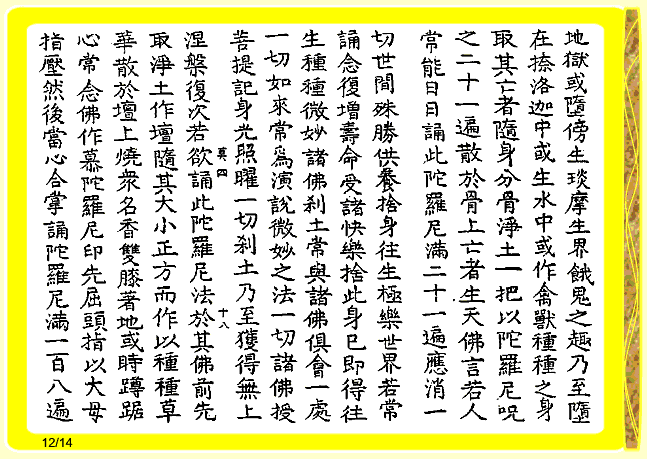 地獄或墮傍生琰摩生界餓鬼之趣乃至墮
在捺洛迦中或生水中或作禽獸種種之身
取其亡者隨身分骨淨土一把以陀羅尼呪
之二十一遍散於骨上亡者生天佛言若人
常能日日誦此陀羅尼滿二十一遍應消一
切世間殊勝供養捨身往生極樂世界若常
誦念復增壽命受諸快樂捨此身已即得往
生種種微妙諸佛剎土常與諸佛俱會一處
一切如來常為演說微妙之法一切諸佛授
菩提記身光照曜一切剎土乃至獲得無上
莫四 十八
涅槃復次若欲誦此陀羅尼法於其佛前先
取淨土作壇隨其大小正方而作以種種草
華散於壇上燒衆名香雙膝著地或時蹲踞
心常念佛作慕陀羅尼印先屈頭指以大母
指壓然後當心合掌誦陀羅尼滿一百八遍
12/14